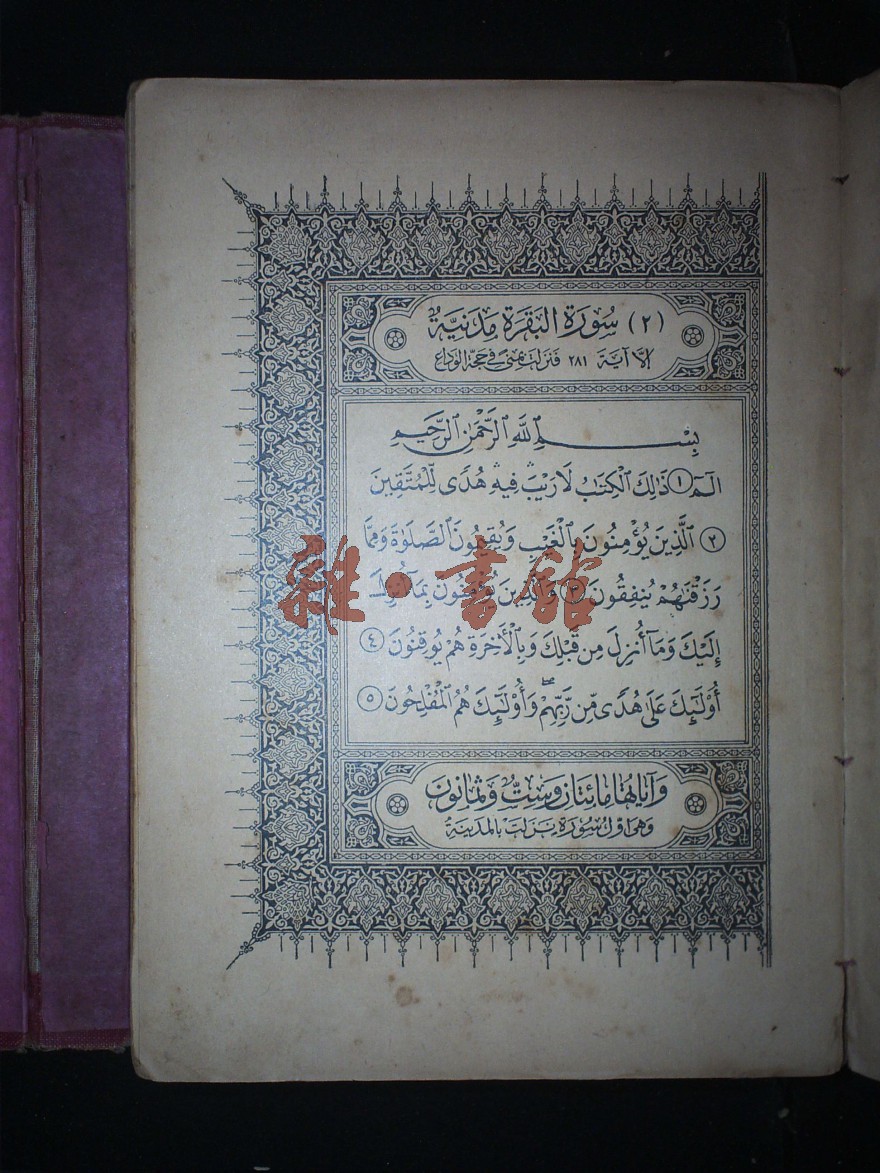 (٢) سُورَةُ البَقَرَةِ مَدَنِيَّةٌ
إلا آية ٢٨١ فنزلت بمنى في حجة الوداع
بِسْمِ ٱللَّهِ ٱلرَّحْمَٰنِ ٱلرَّحِيمِ
الٓمٓ ١ ذَٰلِكَ ٱلْكِتَٰبُ لَا رَيْبَ فِيهِ هُدًى لِّلْمُتَّقِينَ
٢ ٱلَّذِينَ يُؤْمِنُونَ بِٱلْغَيْبِ وَيُقِيمُونَ ٱلصَّلَوٰةَ وَمِمَّا
رَزَقْنَٰهُمْ يُنفِقُونَ ٣ وَٱلَّذِينَ يُؤْمِنُونَ بِمَآ أُنزِلَ
إِلَيْكَ وَمَآ أُنزِلَ مِن قَبْلِكَ وَبِٱلْأٓخِرَةِ هُمْ يُوقِنُونَ ٤
أُوْلَٰٓئِكَ عَلَىٰ هُدًى مِّن رَّبِّهِمْ وَأُوْلَٰٓئِكَ هُمُ ٱلْمُفْلِحُونَ ٥
وَآيَاتُهَا مِائَتَانِ وَسِتٌّ وَثَمَانُونَ
وهي أول سورة نزلت بالمدينة
雜·書館